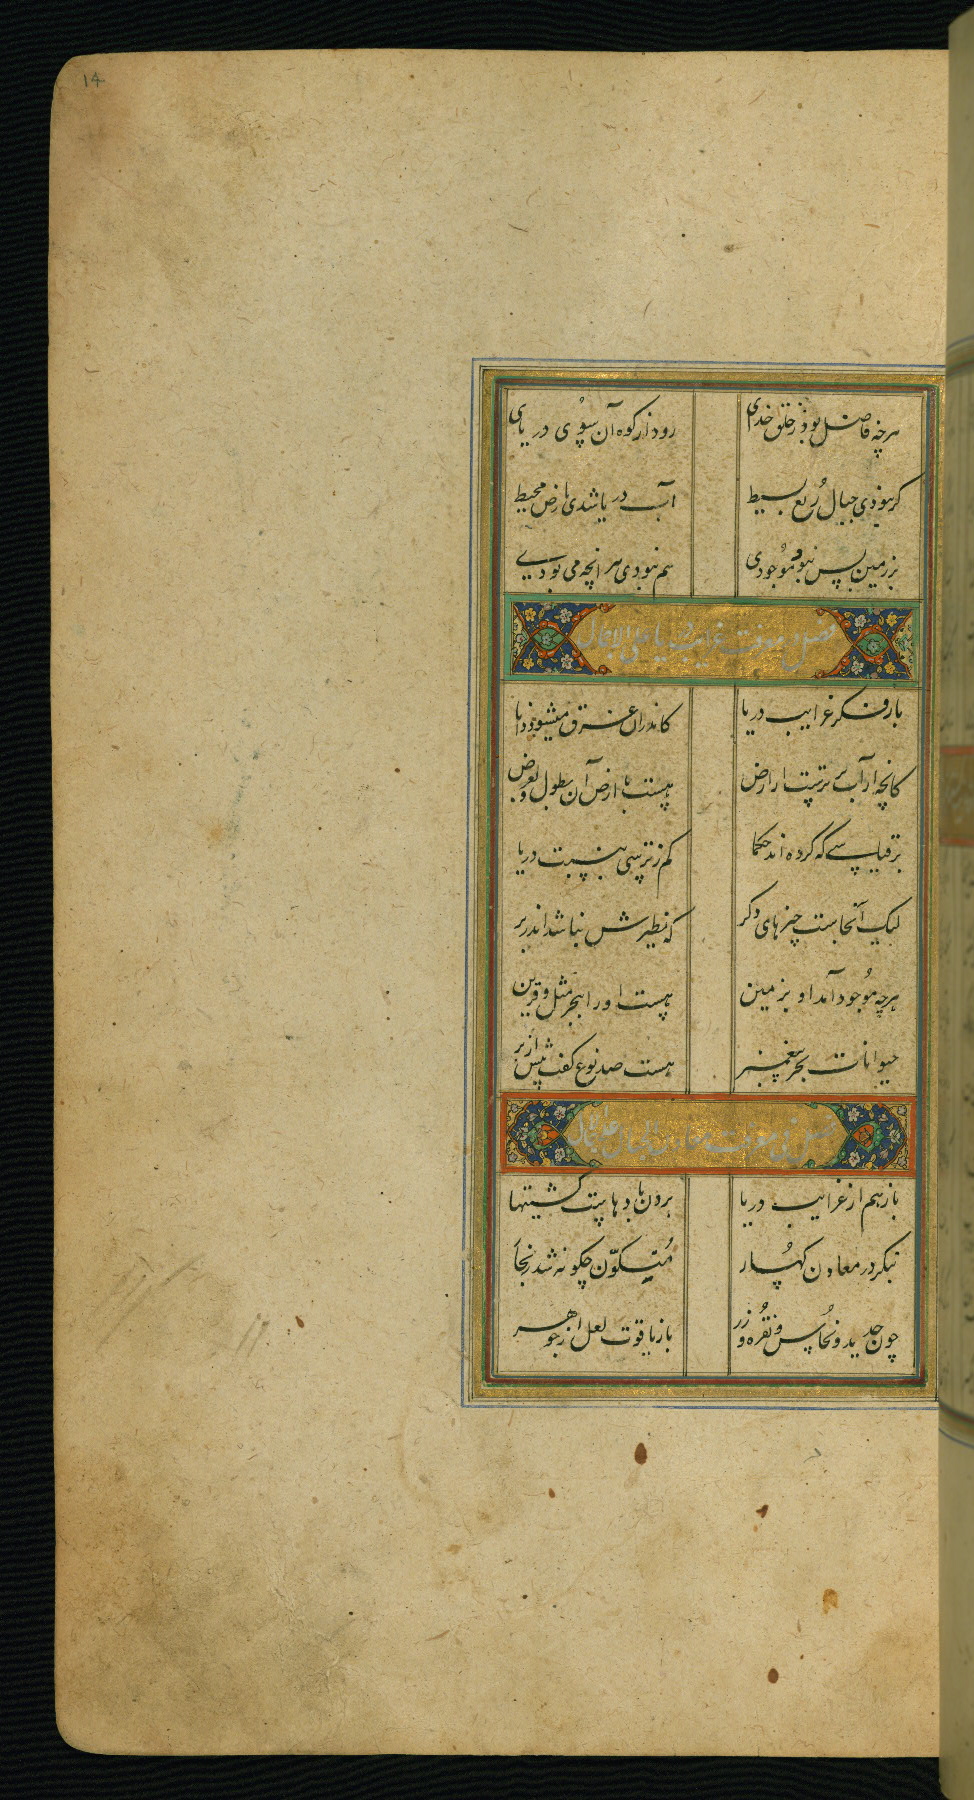 14
هرچه فاضل بود ز خلق خدای رود از کوه آن سوی دریای
گر نبودی جبال ربع بسیط آب دریا شدی بارض محیط
بر زمین پس نبود موجودی هم نبودی هر انچه می بودی
فصل در معرفت غرایب دریا علی الاجمال
بار فکر غرایب دریا کاندران غرق میشود دانا
کانچه از آب برترست از ارض هست با ارض آن بطول و بعرض
بر قیاسی که کرده اند حکما کم ز ترسی بنسبت دریا
لیک آنجاست چیزهای دکر که نظیرش نباشد اندر بر
هرچه موجود آمد او بزمین هست او را ببحر مثل و قرین
حیوانات بحر پیغمبر هست صد نوع کفت بیش از بر
فصل فی معرفت معادن الجبال علی الاجمال
باز هم از غرایب دریا برون بادهاست کشتیها
بنکر در معادن کهسار متکون چکونه شد زنجا
چون حدید و نحاس و نقره و زر باز یاقوت لعل از جوهر